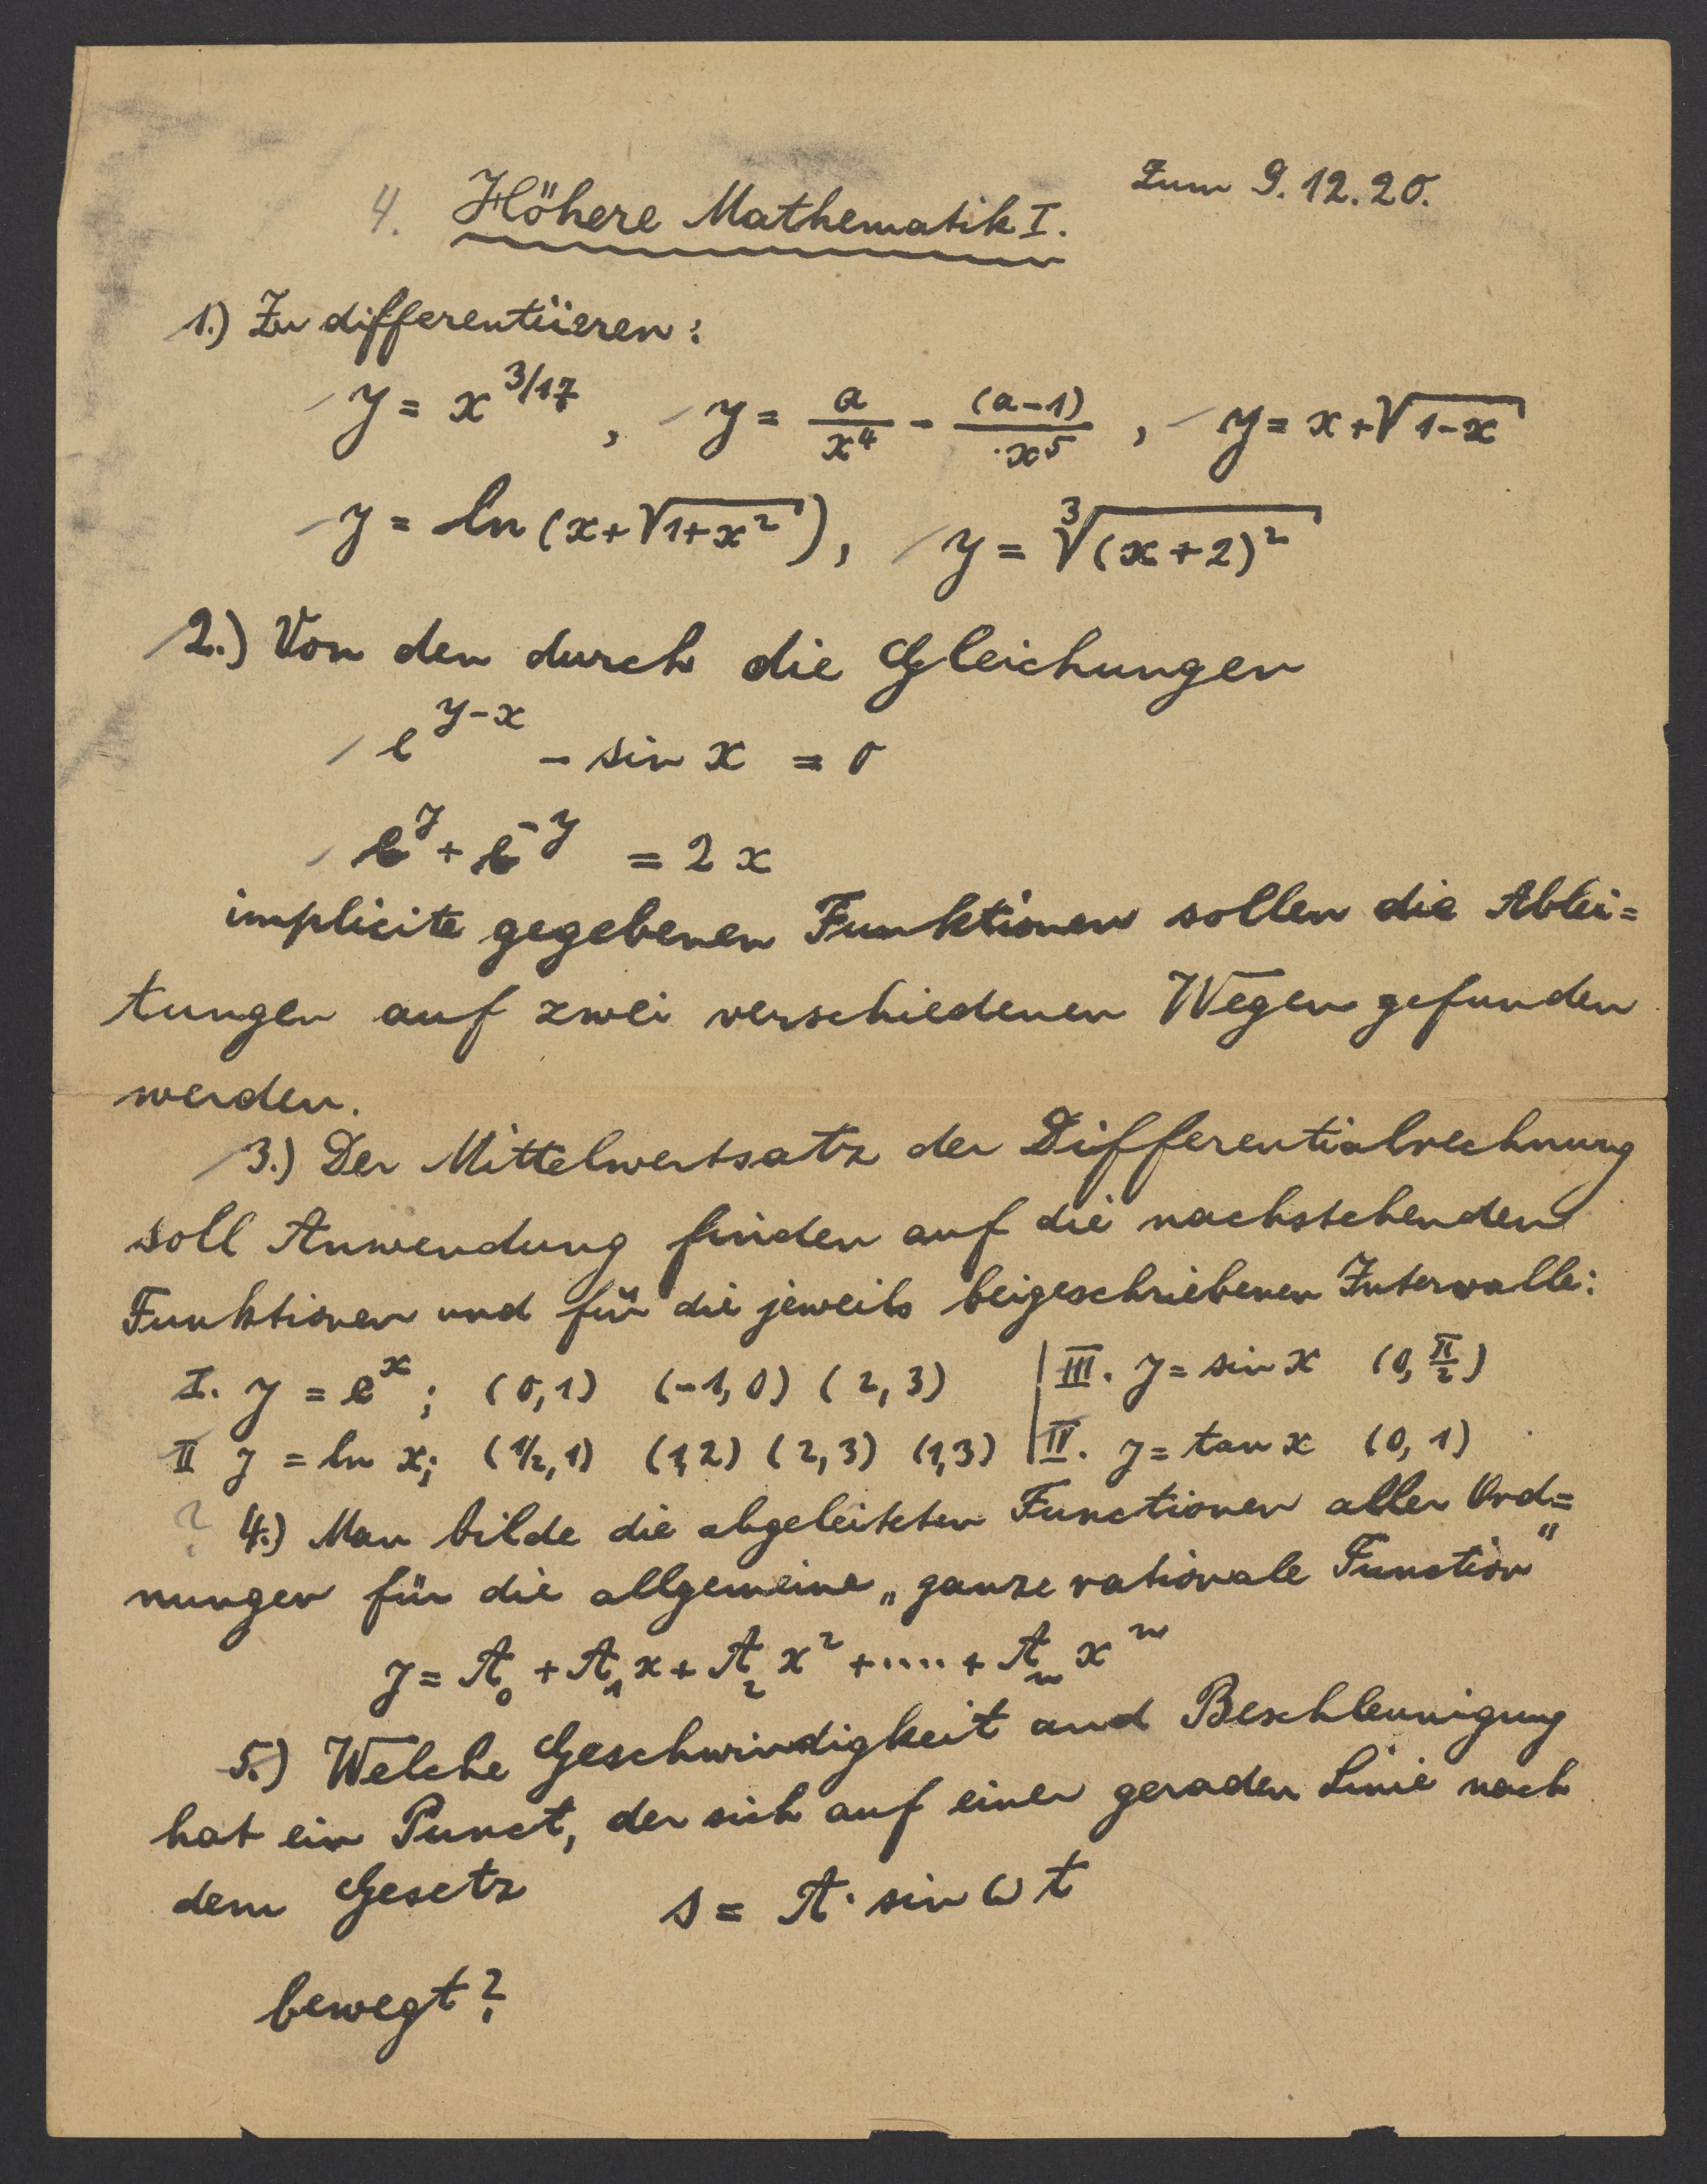 Zum 9.12.20.
4. Höhere Mathematik I.
1.) Zu differentiieren:
y = x^{3/17}, y = a/x^4 - (a-1)/x^5, y = x+√(1-x)
y = ln (x+√(1+x²)), y = ∛((x+2)²)
2.) Von den durch die Gleichungen
e^{y-x} - sin x = 0
e^y + e^{-y} = 2x
implicite gegebenen Funktionen sollen die Ablei=
tungen auf zwei verschiedenen Wegen gefunden
werden.
3.) Der Mittelwertsatz der Differentialrechnung
soll Anwendung finden auf die nachstehenden
Funktionen und für die jeweils beigeschriebenen Intervalle:
I. y = e^x; (0,1) (-1,0) (2,3) | III. y = sin x (0, π/2)
II y = ln x; (1/2,1) (1,2) (2,3) (1,3) | IV. y = tan x (0,1)
? 4.) Man bilde die abgeleiteten Functionen aller Ord=
nungen für die allgemeine „ganze rationale Function"
y = A₀ + A₁x + A₂x² + ····· + Aₙxⁿ
5.) Welche Geschwindigkeit und Beschleunigung
hat ein Punct, der sich auf einer geraden Linie nach
dem Gesetz s = A · sin ω t
bewegt?